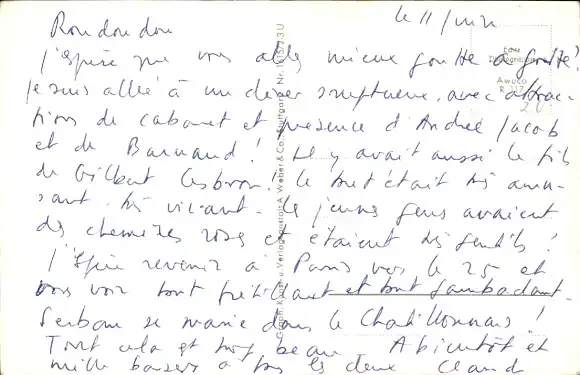 Roudoudou
le 11 juin
J'espère que vous allez mieux goutte à goutte!
Je suis allée à un dîner somptueux, avec attrac-
tions de cabaret et présence d'André Jacob
et de Barnaud! Il y avait aussi le fils
de Gilbert Cesbron! Le tout était très amu-
sant très vivant. Les jeunes gens avaient
des chemises roses et étaient très gentils!
J'espère revenir à Paris vers le 25 et
vous voir tout frétillant et tout gambadant.
se marie dans le Chatillonnais!
Tout cela est trop beau. A bientôt et
mille baisers à tous les deux Claude
Graph. Kunst- u. Verlagsanstalt A. Weber & Co., Stuttgart Nr. 1615/23 U
Echte
Photographie
Awuco
R
20